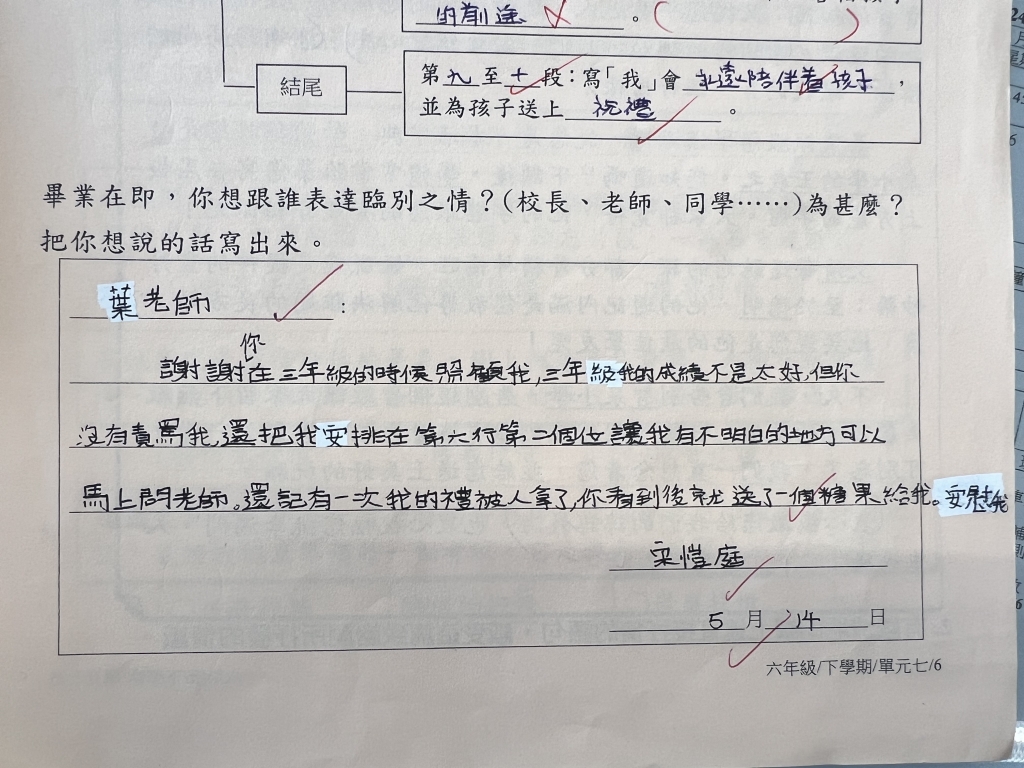 的前途。(　　)
結尾
第九至十段：寫「我」會永遠陪伴着孩子，
並為孩子送上祝禮。
畢業在即，你想跟誰表達臨別之情？(校長、老師、同學……)為甚麼？
把你想說的話寫出來。
葉老師：
謝謝你在三年級的時候照顧我,三年級我的成績不是太好,但你
沒有責罵我,還把我安排在第六行第二個位讓我有不明白的地方可以
馬上問老師。還記有一次我的禮被人拿了,你看到後就送了一個糖果給我。安慰我
宋愷庭
5月14日
六年級/下學期/單元七/6